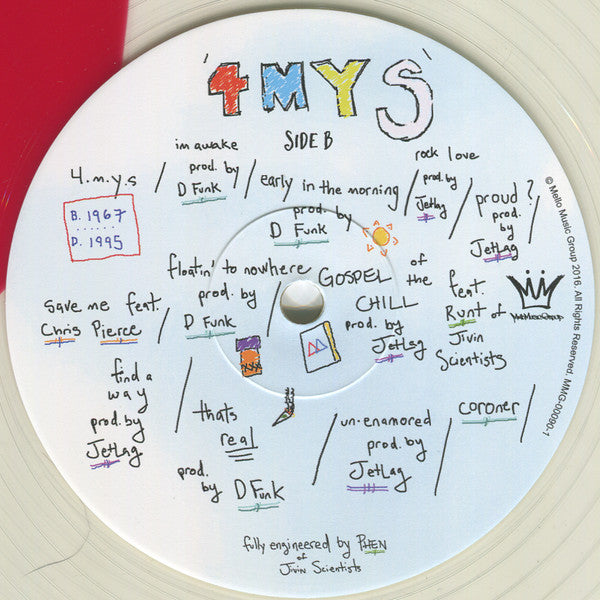 '4MYS'
SIDE B
4.m.y.s /
im awake
prod. by
D Funk /
early in the morning
prod. by
D Funk /
rock love
prod. by
JetLag /
proud?
prod.
by
JetLag
B. 1967
......
D. 1995
save me feat.
Chris Pierce /
floatin' to nowhere
prod. by
D Funk /
GOSPEL of
CHILL the
prod. by
JetLag /
feat.
Runt of
Jivin
Scientists
find a
way
prod. by
JetLag /
thats
real
prod.
by D Funk /
un-enamored
prod. by
JetLag /
coroner /
XXX
fully engineered by PHEN
of
Jivin Scientists
MelloMusicGroup
© Mello Music Group 2016. All Rights Reserved. MMG-00090-1